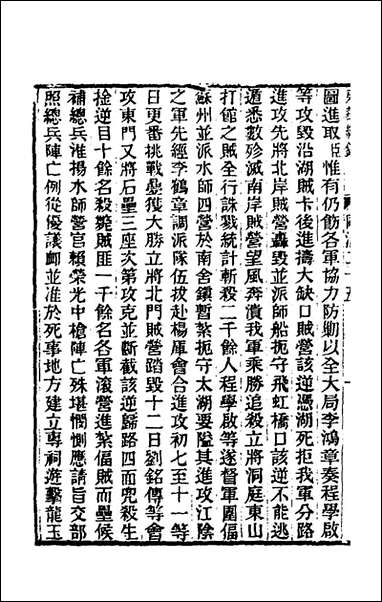 圖進取臣惟有仍飭各軍協力防剿以全大局李鴻章奏程學啟
等攻毀沿湖賊卡後進擣大缺口賊營該逆憑湖死拒我軍分路
進攻先將北岸賊營轟毀並派師船扼守飛虹橋口該逆不能逃
遁悉數殄滅南岸賊營望風奔潰我軍乘勝追殺立將洞庭東山
打館之賊全行誅戮統計斬殺二千餘人程學啟等遂督軍圍偪
蘇州並派水師四營於南舍鎮暫紮扼守太湖要隘其進攻江陰
之軍先經李鶴章調派隊伍拔赴楊厙會合進攻初七至十一等
日更番挑戰疊獲大勝立將北門賊營踏毀十二日劉銘傳等會
攻東門又將石壘三座次第攻克並斷截該逆歸路四面兜殺生
捡逆目十餘名殺斃賊匪一千餘名各軍滾營進紮偪賊而壘候
補總兵淮揚水師營官賴榮光中槍陣亡殊堪憫惻應請旨交部
照總兵陣亡例從優議卹並准於死事地方建立專祠遊擊龍玉